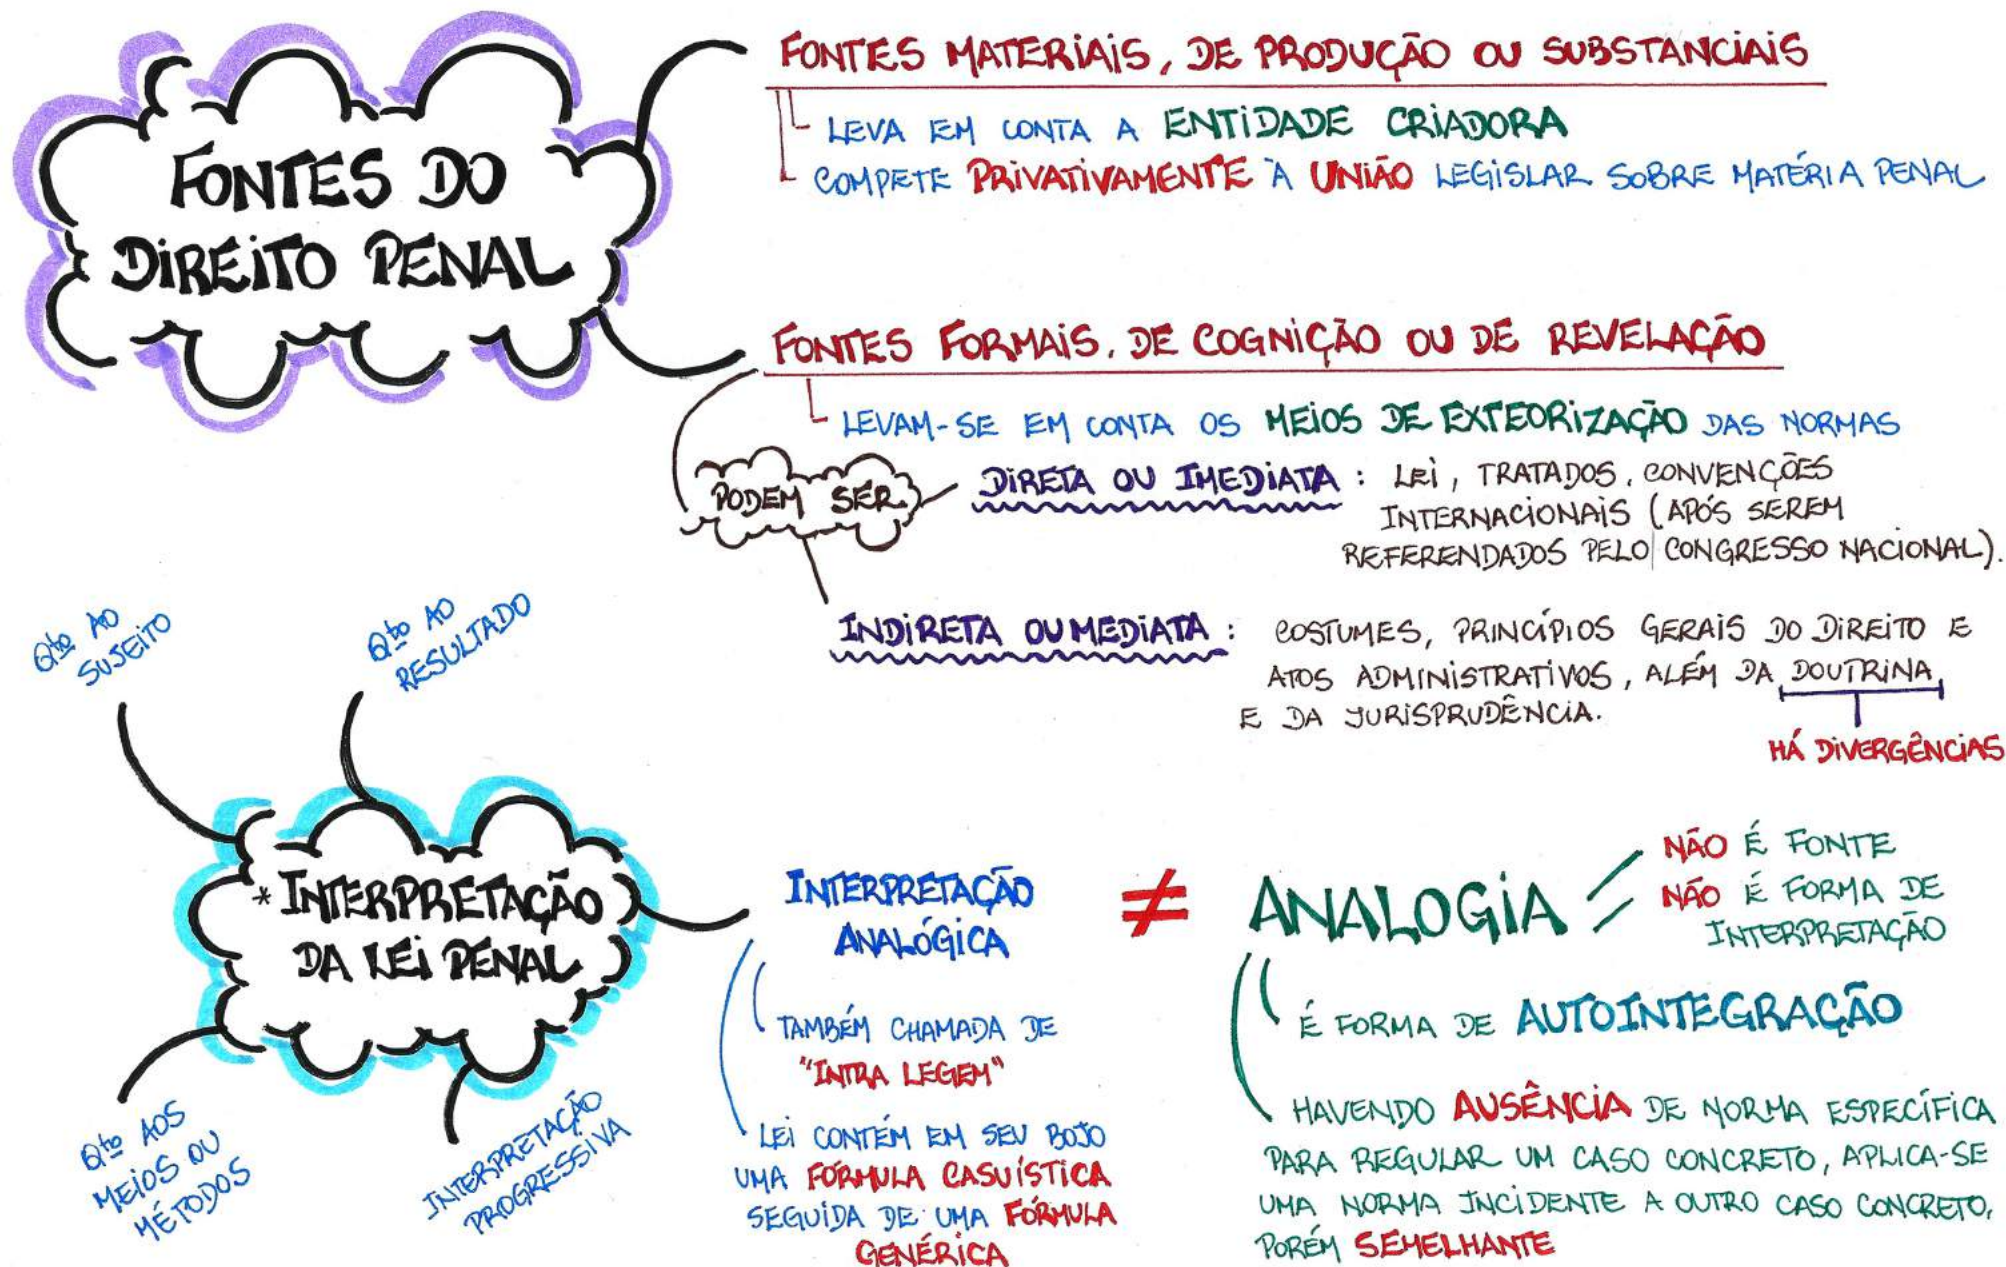 FONTES DO
DIREITO PENAL
FONTES MATERIAIS, DE PRODUÇÃO OU SUBSTANCIAIS
LEVA EM CONTA A ENTIDADE CRIADORA
COMPETE PRIVATIVAMENTE À UNIÃO LEGISLAR SOBRE MATÉRIA PENAL
FONTES FORMAIS, DE COGNIÇÃO OU DE REVELAÇÃO
LEVAM-SE EM CONTA OS MEIOS DE EXTEORIZAÇÃO DAS NORMAS
PODEM SER
DIRETA OU IMEDIATA: LEI, TRATADOS, CONVENÇÕES
INTERNACIONAIS (APÓS SEREM
REFERENDADOS PELO CONGRESSO NACIONAL).
INDIRETA OU MEDIATA: COSTUMES, PRINCÍPIOS GERAIS DO DIREITO E
ATOS ADMINISTRATIVOS, ALÉM DA DOUTRINA
E DA JURISPRUDÊNCIA.
HÁ DIVERGÊNCIAS
* INTERPRETAÇÃO
DA LEI PENAL
Qto AO
SUJEITO
Qto AO
RESULTADO
Qto AOS
MEIOS OU
MÉTODOS
INTERPRETAÇÃO
PROGRESSIVA
INTERPRETAÇÃO
ANALÓGICA
TAMBÉM CHAMADA DE
"INTRA LEGEM"
LEI CONTÉM EM SEU BOJO
UMA FÓRMULA CASUÍSTICA
SEGUIDA DE UMA FÓRMULA
GENÉRICA
≠
ANALOGIA
NÃO É FONTE
NÃO É FORMA DE
INTERPRETAÇÃO
É FORMA DE AUTOINTEGRAÇÃO
HAVENDO AUSÊNCIA DE NORMA ESPECÍFICA
PARA REGULAR UM CASO CONCRETO, APLICA-SE
UMA NORMA INCIDENTE A OUTRO CASO CONCRETO,
PORÉM SEMELHANTE